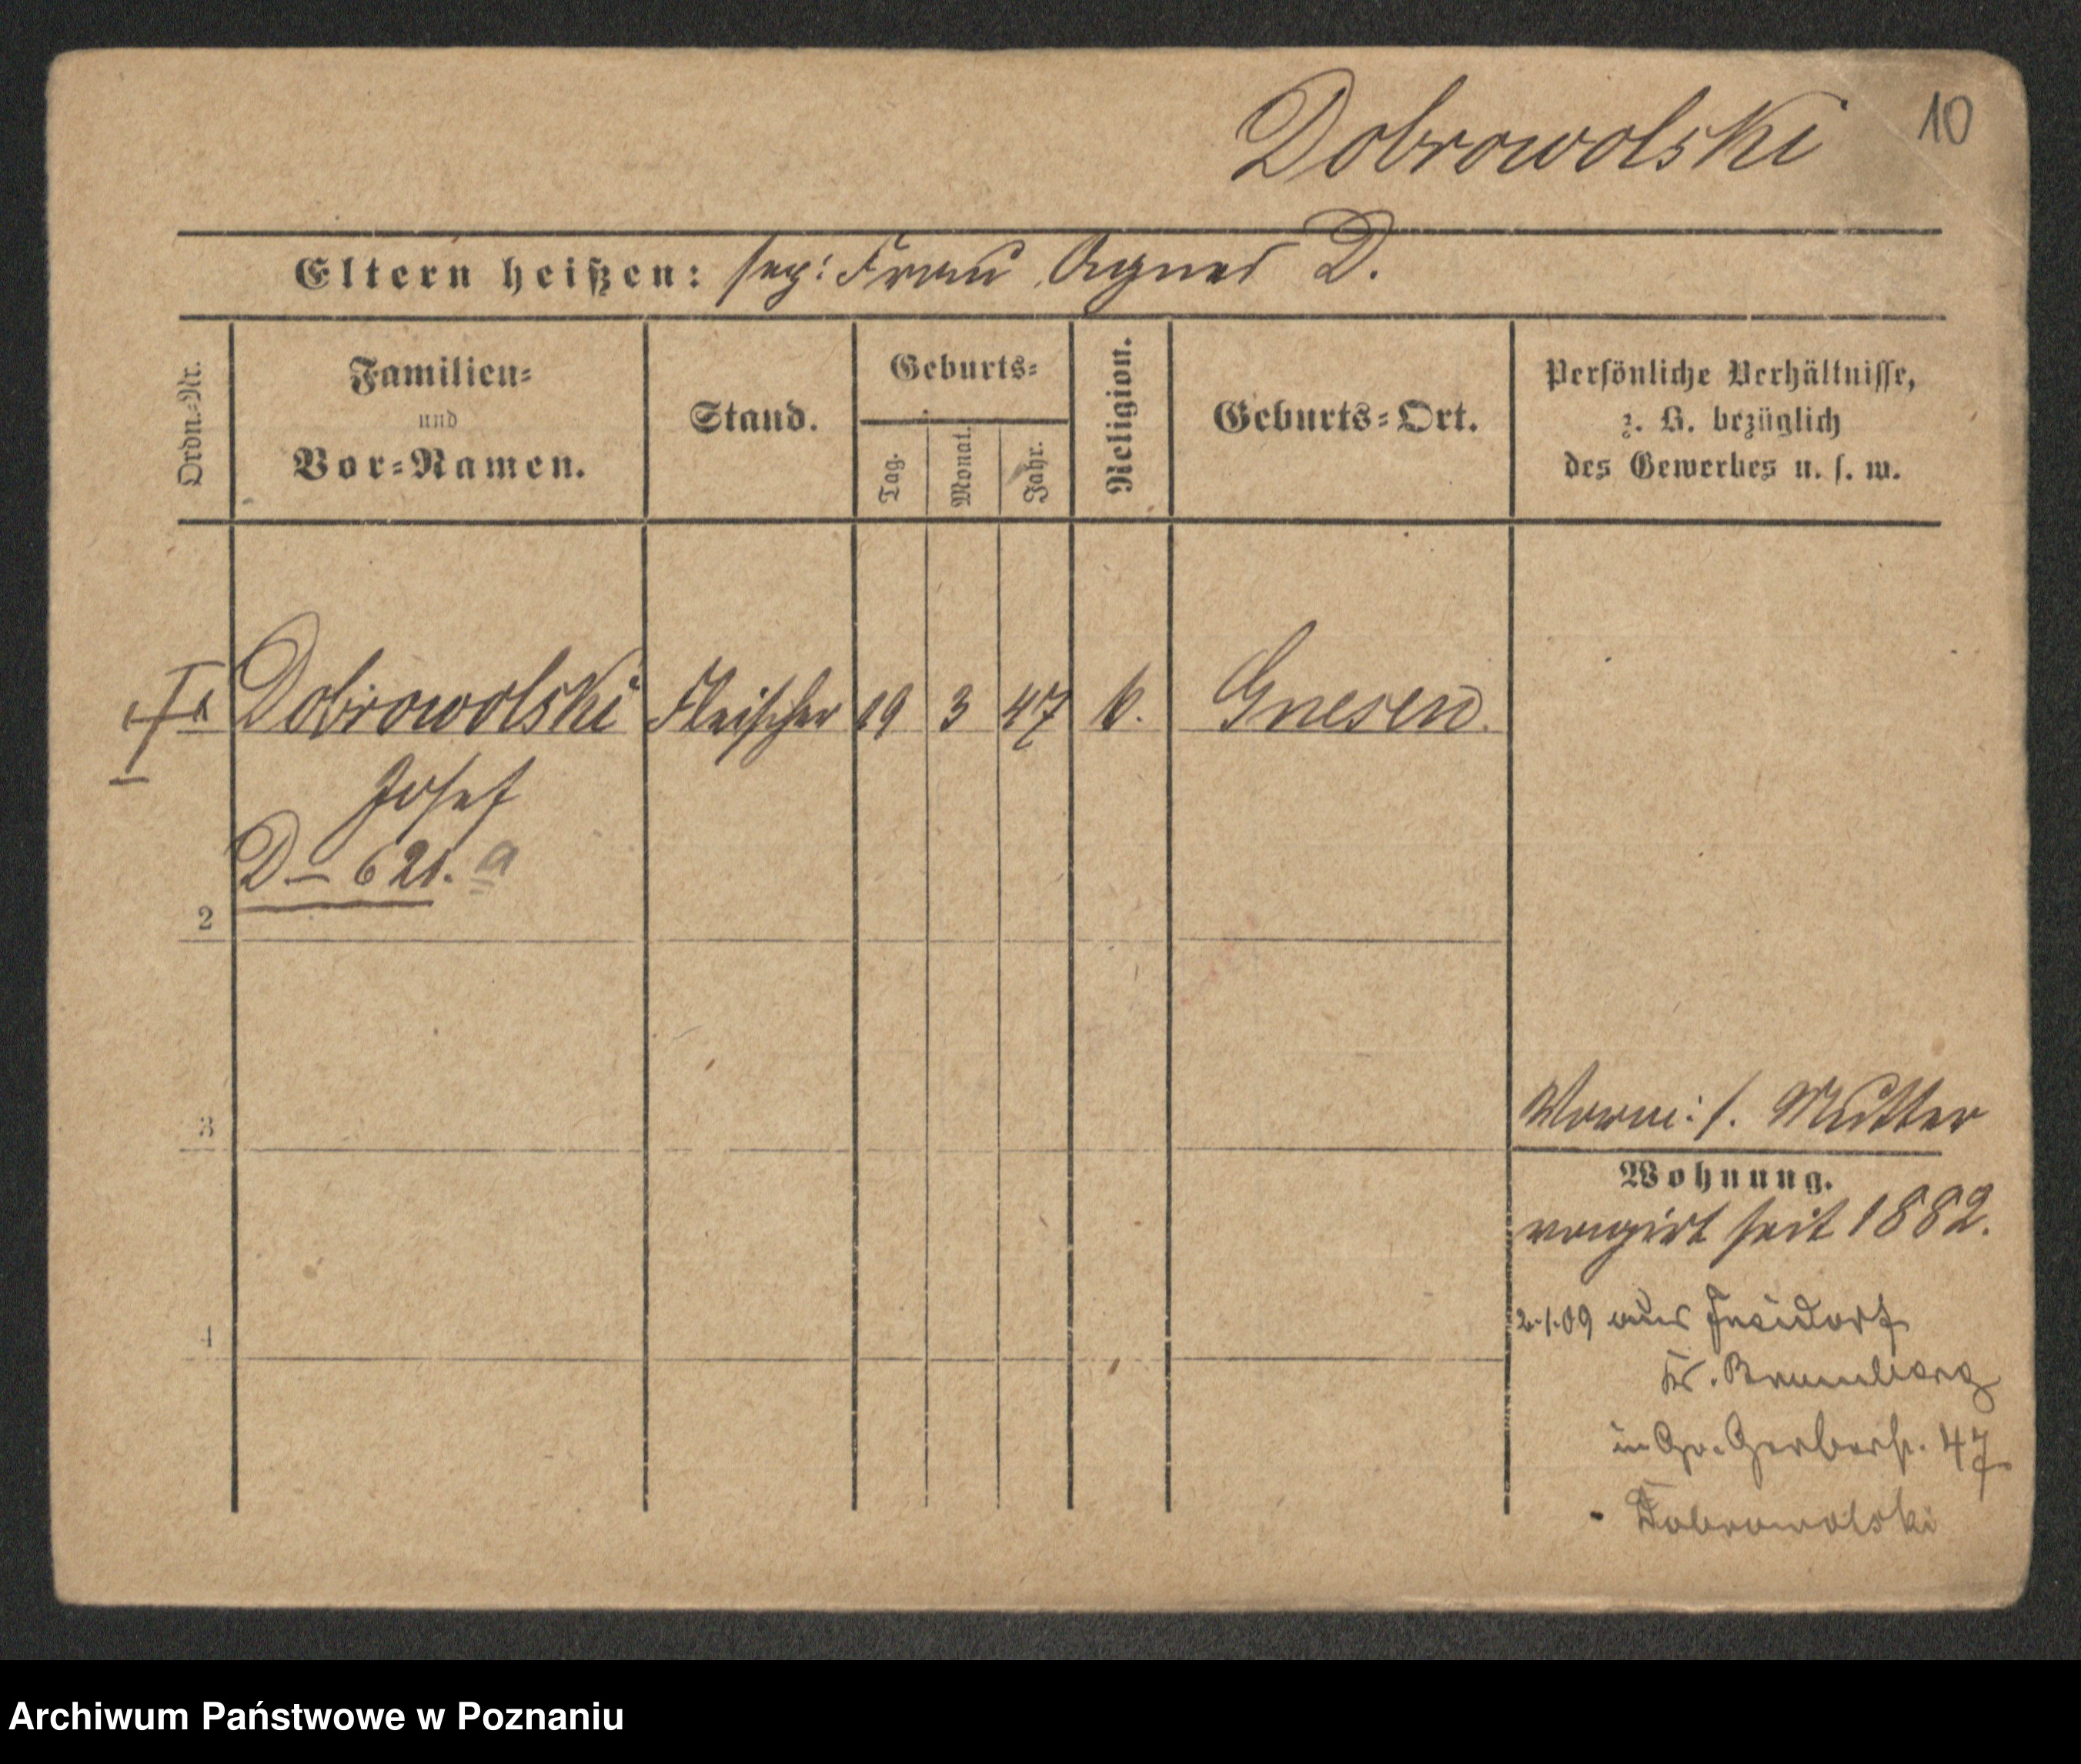 Dobrowolski 10
Eltern heißen: sep: Frau Agnes D.
Ordn.-Nr.
Familien-
und
Vor-Namen.
Stand.
Geburts-
Tag.
Monat.
Jahr.
Religion.
Geburts-Ort.
Persönliche Verhältnisse,
z. B. bezüglich
des Gewerbes u. s. w.
Dobrowolski Fleischer 19 3 47 k. Gnesen.
Josef
D – 621. a
2
3
4
s. Mutter
Wohnung.
seit 1882.
2.1.09 aus
Kr. Bromberg
in Gr. Gerberst. 47
Dobrowolski
Archiwum Państwowe w Poznaniu